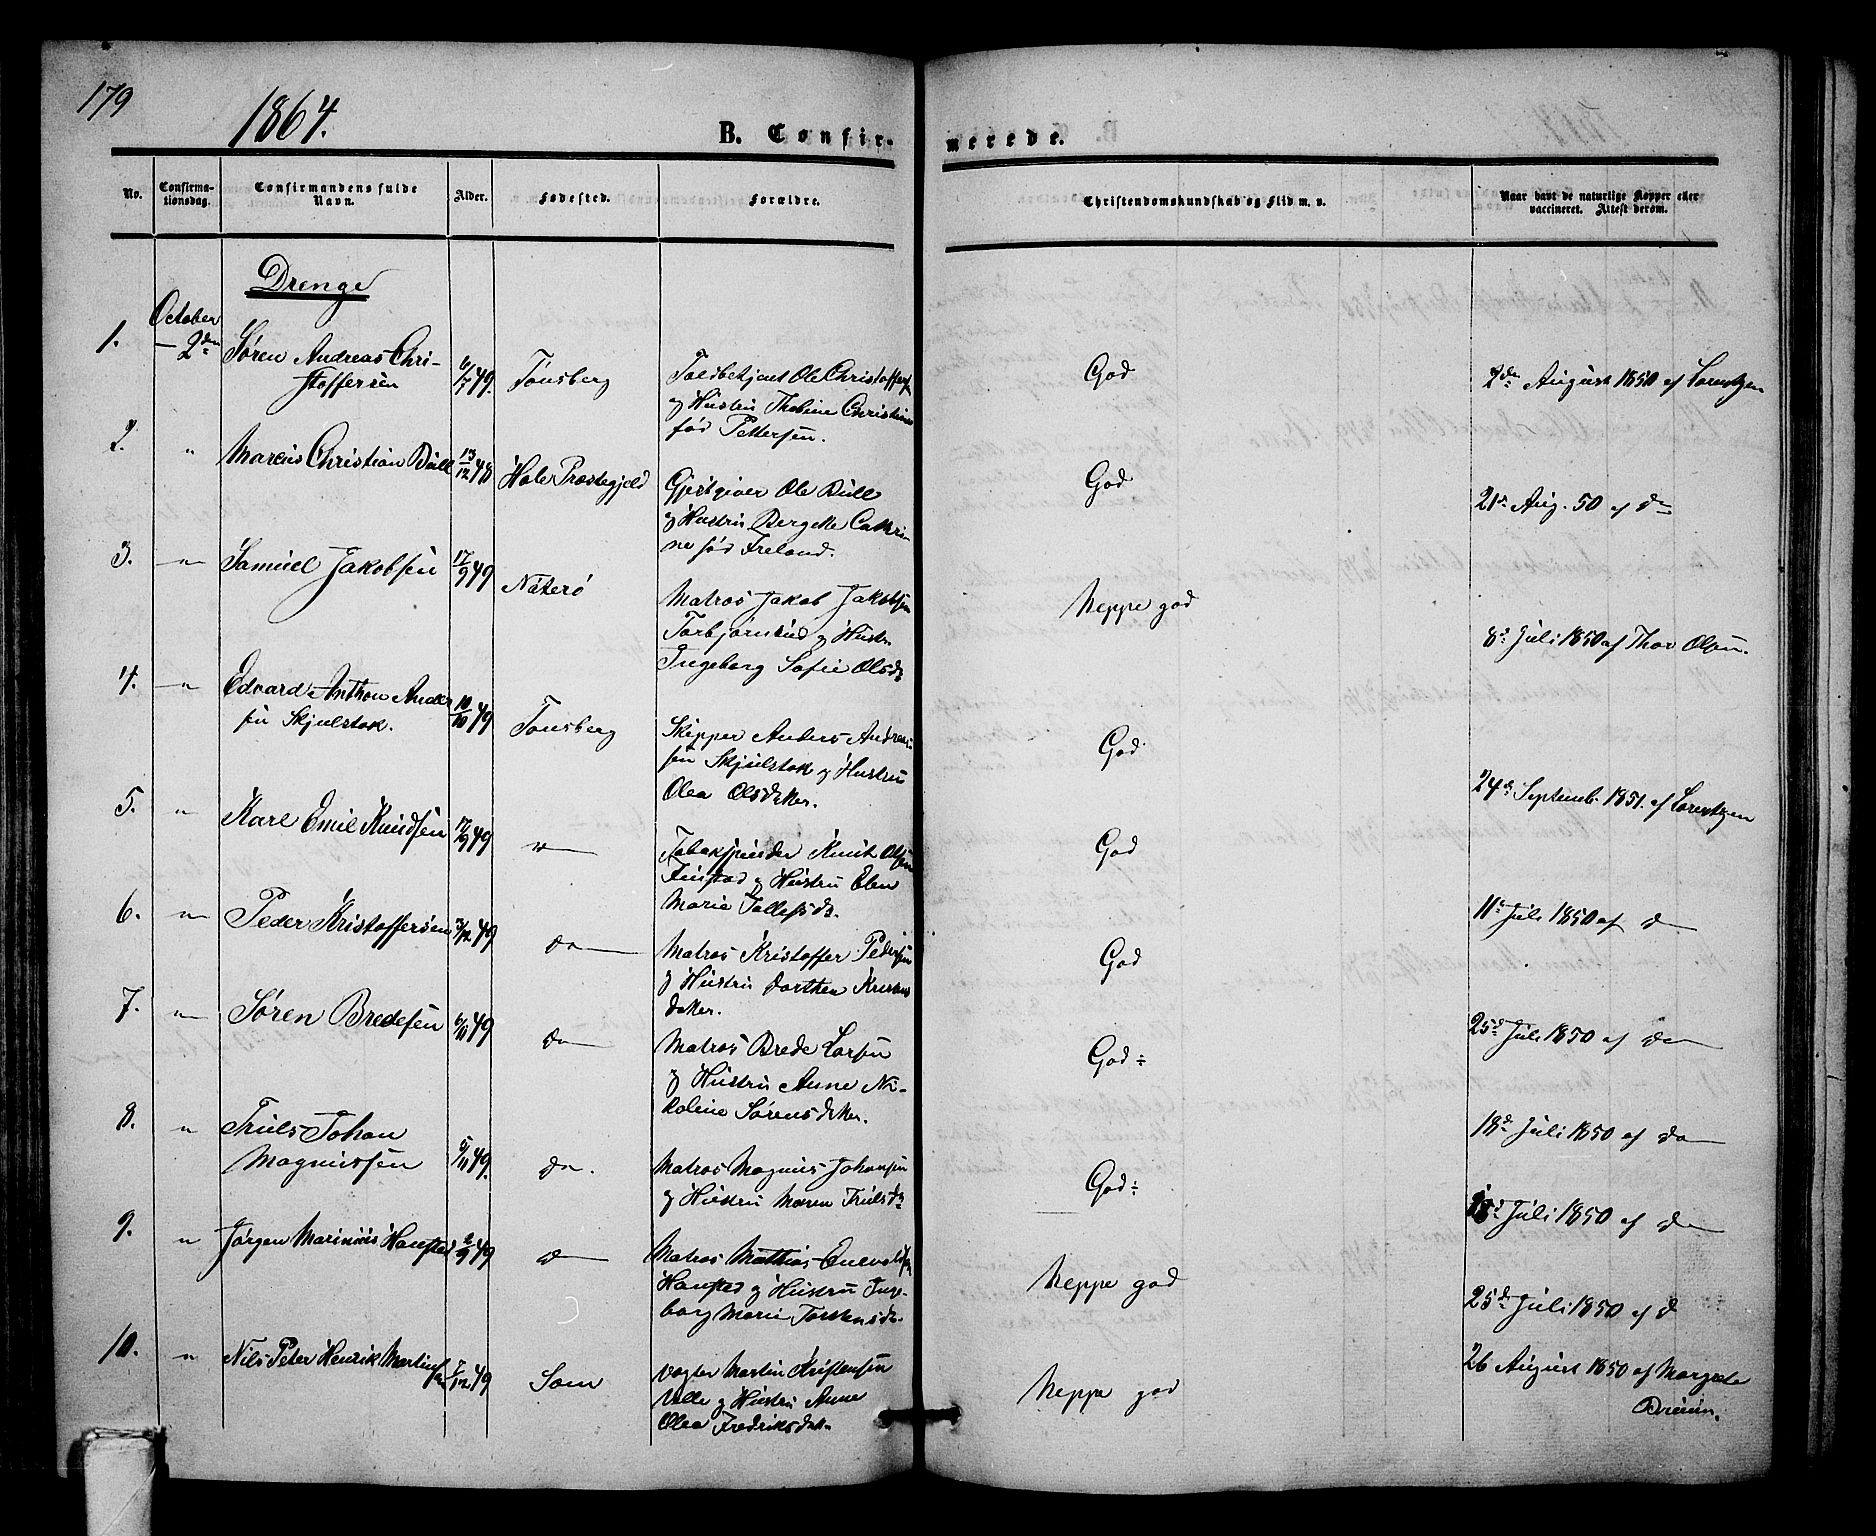 179
1864.
B. Confir-
merede.
No.
Confirma-
tionsdag.
Confirmandens fulde
Navn.
Alder.
Fødested.
Forældre.
Christendomskundskab og Flid m. v.
Naar havt de naturlige Kopper eller
vaccineret. Attest derom.
Drenge
October
1. — 2den Søren Andreas Chri-
stoffersen
6/7 49. Tønsberg
Toldbetjent Ole Christoffersen
og Hustru Thobine Christine
fød Pettersen.
God
2den August 1850 af Lorentzen
2. " Marcus Christian Bull 13/12 48 Hole Præstegjeld
Gjestgiver Ole Bull
og Hustru Bergete Cathri-
ne fød Freland.
God
21de Aug. 50 af do
3. " Samuel Jakobsen 17/9 49 Nøterø
Matros Jakob Jakobsen
Torbjørnrud og Hustru
Ingeborg Sofie Olsdr
Neppe god
8de Juli 1850 af Thor Olsen.
4. " Edvard Anthon Ander
sen Skjulstok.
10/10 49 Tønsberg
Skipper Anders Andrea-
sen Skjelstok og Hustru
Olea Olsdatter.
God
24de Septemb. 1851. af Lorentzen
5. " Karl Emil Knudsen 17/9 49 "
Tobakspinder Knut Olsen
Finstad og Hustru Elen
Marie Tollefsdr.
God
11te Juli 1850 af do
6. " Peder Kristoffersen 3/12 49 do
Matros Kristoffer Pedersen
og Hustru Dorthea
datter.
God
25de Juli 1850 af do
7. " Søren Bredesen 6/11 49 do
Matros Brede Larsen
og Hustru Anne Ni-
koline Sørensdatter.
God ÷
18de Juli 1850 af do
8. " Truls Johan
Magnussen
5/11 49. do.
Matros Magnus Johansen
og Hustru Maren Trulsdr
God ÷
18de Juli 1850 af do
9. " Jørgen Marinius Hanstad 2/9 49 do
Matros Mathias Enevoldsen
Hanstad og Hustru Inge-
borg Marie Torstensdr.
Neppe god
25de Juli 1850 af do
10. " Nils Peter Henrik Martinsen 7/12 49 Sem
Vogter Martin Kristensen
Valle og Hustru Anne
Olea Fredriksdatr.
Neppe god
26 August 1850 af Margrete
Bruun.